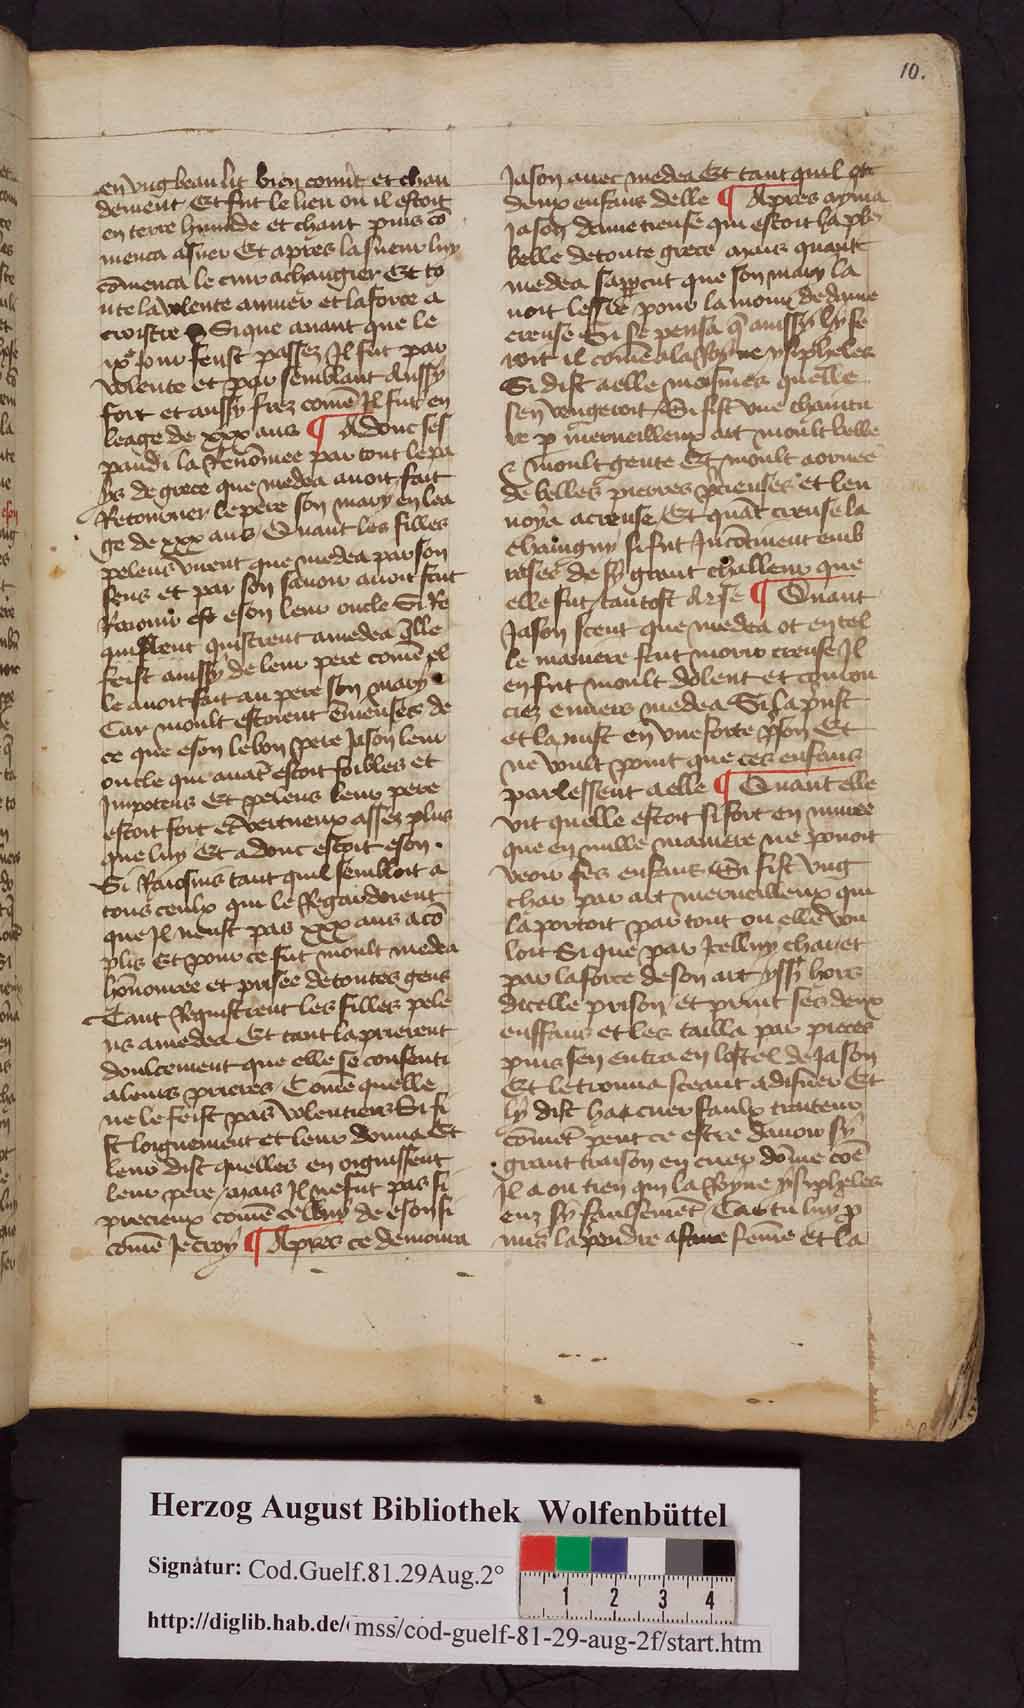 10.
en ung beau lit bien couvt et chau
dement Et fut le lieu ou il estoit
en terre humide et chaut puis cō
menca a suer Et apres la sueur luy
cōmenca le cuir a changier Et to
ute la volente a muer et la force a
croistre Si que avant que le
ixe jour feust passez Il fut par
volente et par semblant aussy
fort et aussy frez comē Il fut en
leage de xxx ans ¶ Adonc ses
pandi la Renōmee par tout le pa
ys de grece que medea avoit fait
Retourner le pere son mary en lea
ge de xxx ans Quant les filles
peleus virent que medea par son
sens et par son savoir avoit fait
eson leur oncle Si Re
quistrent a medea Elle
feist aussy de leur pere comē el
le avoit fait au pere son mary
Car moult estoient de
ce que eson le bon pere Jason leur
oncle qui avāt estoit foibles et
Impotens Et peleus leur pere
estoit fort et vertueux assez plus
que luy Et adonc estoit eson
Si tant quil sembloit a
tous ceulx qui le Regardoient
que Il neust pas xxx ans acō
plis Et pour ce fut moult medea
hōnouree et prisee de toutes gens
Tant Requistrent les filles pele
us a medea Et tant la prierent
doulcement que elle se consenti
a leurs prieres Comē quelle
ne le feist pas volentiers Si fi
st loignement et leur donna Et
leur dist quelles en oignissent
leur pere mais Il ne fut pas si
precieux comē celluy de eson si
comē Je croy ¶ Apres ce demoura
Jason avec medea Et tant quil ot
deux enfans delle ¶ Apres ayma
Jason dame creuse qui estoit la pl9
belle de toute grece mais quant
medea sapcut que son mary la
voit lessee pour lamour de dame
creuse Si se pensa q̄ aussy ly fe
roit il comē a la Royne ysipheles
Si dist a elle meismes quelle
sen vengeroit Si fist une chaintu
re p merveilleux art moult belle
⁊ moult gente Et moult aornee
de belles pierres pcieuses et len
voya a creuse Et quāt creuse la
chaingny si fut Incōtinent emb
rasee de sy grant challeur que
elle fut tantost Arse ¶ Quant
Jason sceut que medea ot en tel
le maniere fait morir creuse Il
en fut moult dolent et courou
ciez envers medea Si la prist
et la mist en une forte pson Et
ne voult point que ces enfans
parlessent a elle ¶ Quant elle
vit quelle estoit si fort en muree
que en nulle maniere ne pouoit
veoir ses enfans Si fist ung
char par art merveilleux qui
la portoit par tout ou elle vou
loit Si que par Icelluy char et
par la force de son art yssy hors
dicelle prison et print ses deux
enffans et les tailla par pieces
puis sen entra en lostel de Jason
Et le trouva sceant a disner Et
ly dist ha cuer faulx traiteur
cōmēt peut ce estre davoir sy
grant traison en cuer dōme coē
Il a ou tien qui la Royne ysipheles
enz sy faulsemēt Car tu luy p
mis la prendre a femē et la
Herzog August Bibliothek Wolfenbüttel
Signatur: Cod.Guelf.81.29Aug.2°
1 2 3 4
http://diglib.hab.de/ mss/cod-guelf-81-29-aug-2f/start.htm